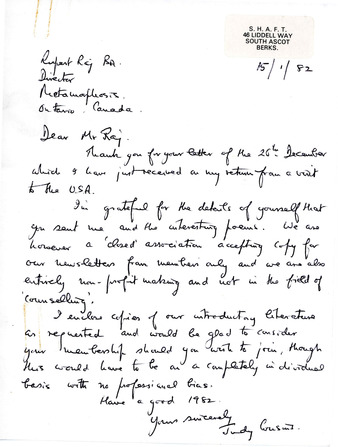 S. H. A. F. T.
46 LIDDELL WAY
SOUTH ASCOT
BERKS.
15/1/82
Rupert Raj BA.
Director
Metamorphosis.
Ontario. Canada.
Dear Mr Raj.
Thank you for your letter of the 26th December
which I have just received on my return from a visit
to the USA.
I'm grateful for the details of yourself that
you sent me and the interesting poems. We are
however a 'closed' association accepting copy for
our newsletters from members only and we are also
entirely non-profit making and not in the field of
'counselling'.
I enclose copies of our introductory literature
as requested and would be glad to consider
your membership should you wish to join, though
this would have to be on a completely individual
basis with no professional bias.
Have a good 1982.
Yours sincerely
Judy Cousins.